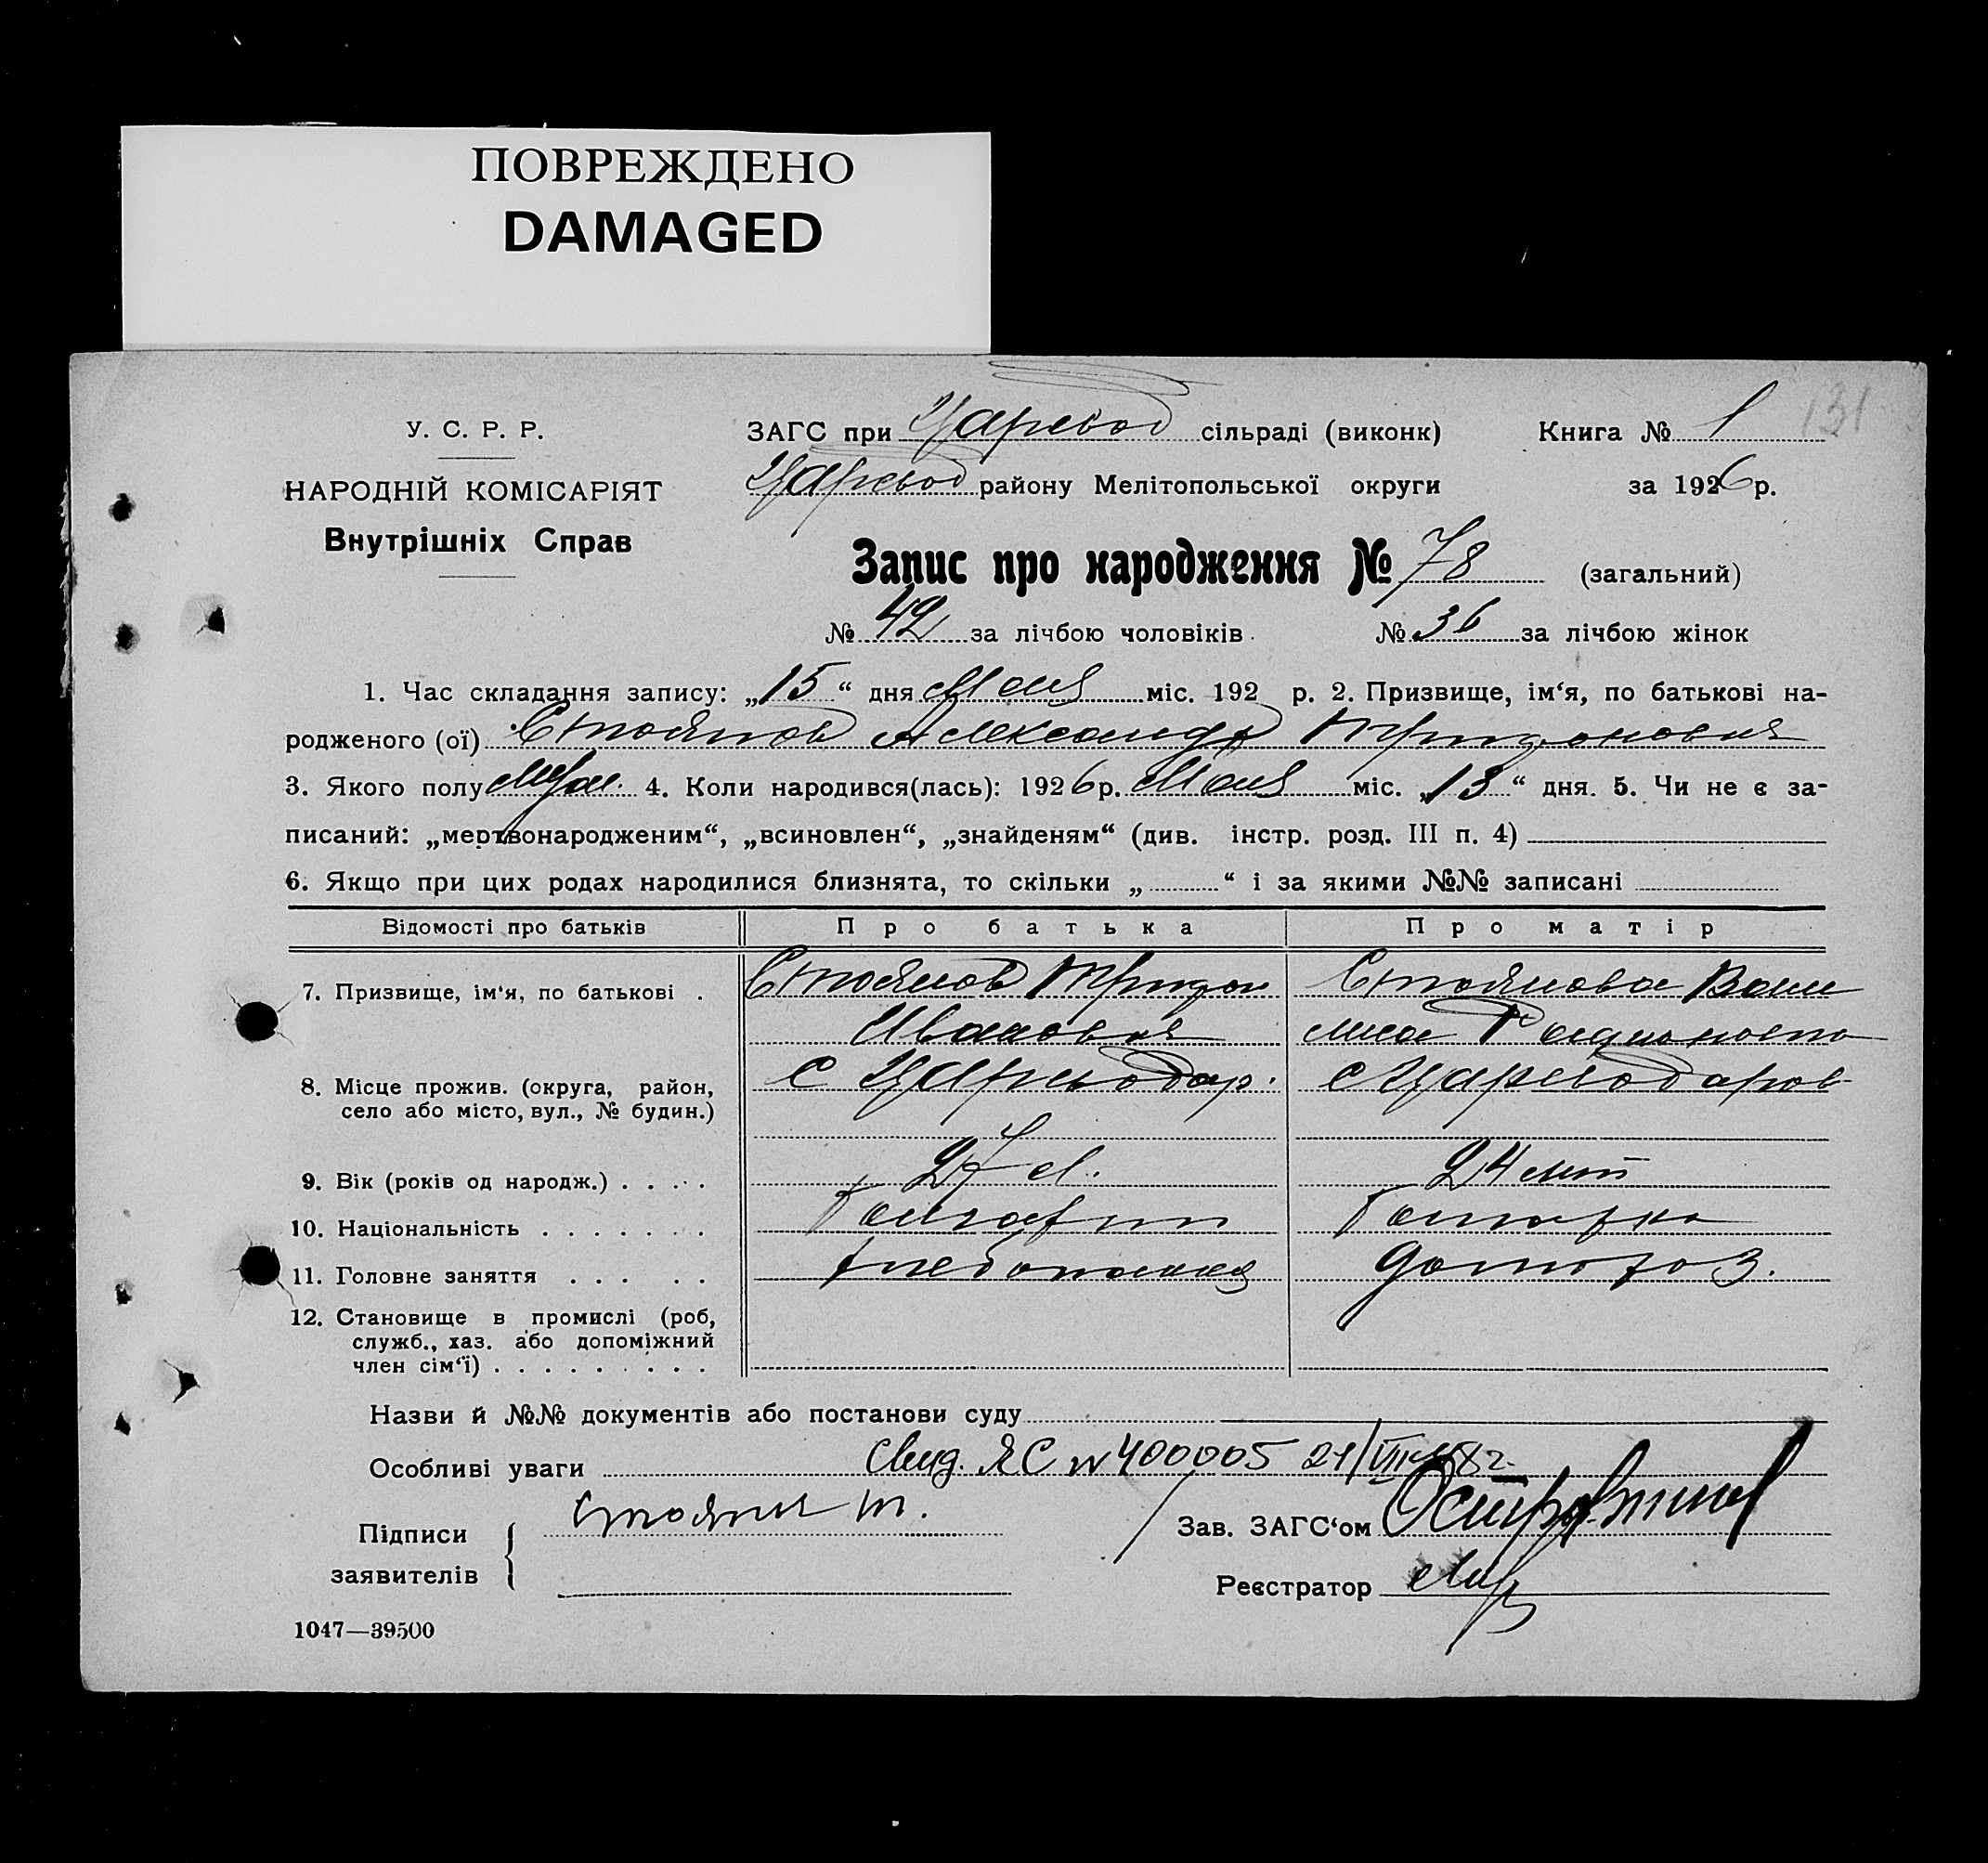 ПОВРЕЖДЕНО
DAMAGED
131
У. С. Р. Р.
НАРОДНІЙ КОМІСАРІЯТ
Внутрішніх Справ
ЗАГС при Царевод сільраді (виконк) Книга № 1
Царевод району Мелітопольської округи за 1926 р.
Запис про народження № 78 (загальний)
№ 42 за лічбою чоловіків № 36 за лічбою жінок
1. Час складання запису: „15“ дня Мая міс. 192 р. 2. Призвище, ім‘я, по батькові на-
родженого (ої) Стоянов Александр Трифонович
3. Якого полу Муж. 4. Коли народився(лась): 1926 р. Мая міс. „13“ дня. 5. Чи не є за-
писаний: „мертвонародженим“, „всиновлен“, „знайденям“ (див. інстр. розд. III п. 4)
6. Якщо при цих родах народилися близнята, то скільки „ “ і за якими №№ записані
Відомості про батьків Про батька Про матір
7. Призвище, ім‘я, по батькові . Стоянов Трифон Стоянова
Иванович
8. Місце прожив. (округа, район, с Цареводар. с Цареводаров
село або місто, вул., № будин.)
9. Вік (років од народж.) . . . . 27 л. 24 лет
10. Національність . . . . . . . Болгарин Болгарка
11. Головне заняття . . . . . хлебопашец домохоз.
12. Становище в промислі (роб,
служб., хаз. або допоміжний
член сім‘ї) . . . . . . . . .
Назви й №№ документів або постанови суду
Особливі уваги Свид. ЯС № 400005 21/VIII
Підписи Стоянов Т. Зав. ЗАГС‘ом
заявителів Реєстратор
1047—39500